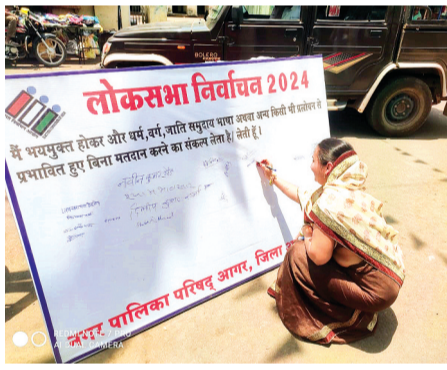 BOLERO
लोकसभा निर्वाचन 2024
मैं भयमुक्त होकर और धर्म, वर्ग, जाति समुदाय भाषा अथवा अन्य किसी भी प्रलोभन से
प्रभावित हुए बिना मतदान करने का संकल्प लेता है/ लेती हूँ।
नगर पालिका परिषद् आगर, जिला
REDMI NOTE 7 PRO
AI DUAL CAMERA